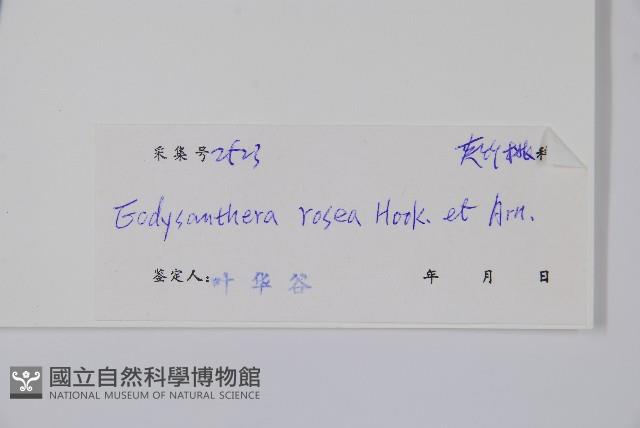 采集号 2523 夹竹桃科
Ecdysanthera rosea Hook. et Arn.
鉴定人：叶华谷 年 月 日
國立自然科學博物館
NATIONAL MUSEUM OF NATURAL SCIENCE